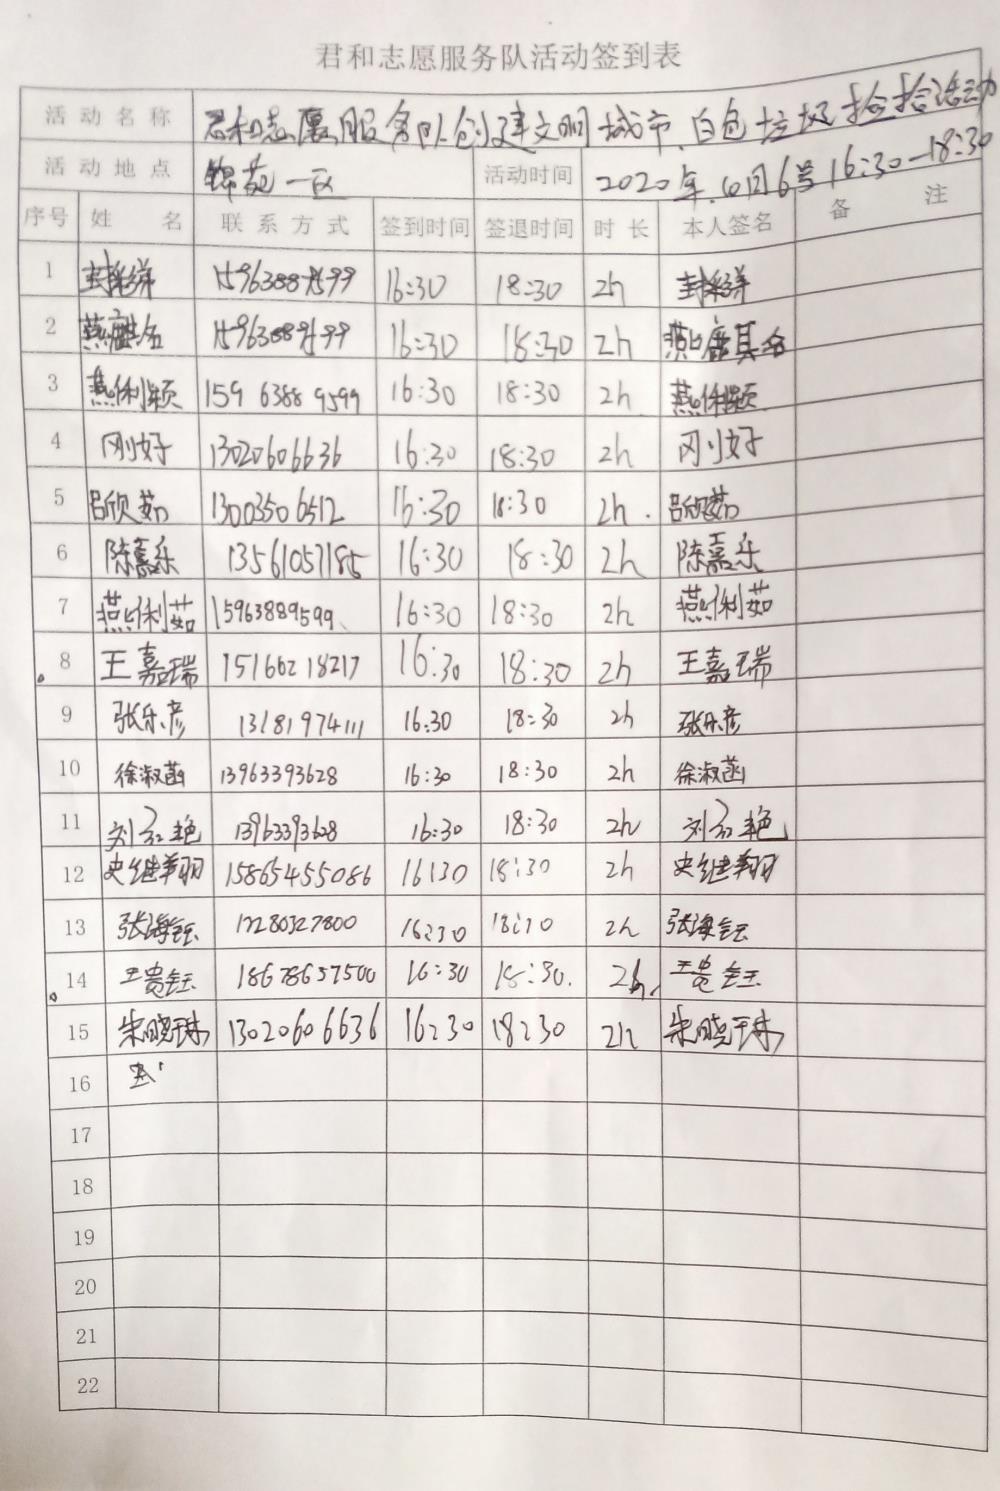 君和志愿服务队活动签到表
活动名称 君和志愿服务队创建文明城市、白色垃圾捡拾活动
活动地点 锦苑一区 活动时间 2020年10月6号16:30—18:30
序号 姓名 联系方式 签到时间 签退时间 时长 本人签名 备注
1 15963889599 16:30 18:30 2h
2 15963889599 16:30 18:30 2h
3 燕俐颖 159 6388 9599 16:30 18:30 2h 燕俐颖
4 刚好 13020606636 16:30 18:30 2h 刚好
5 吕欣茹 13003506512 16:30 18:30 2h. 吕欣茹
6 陈嘉乐 13561057185 16:30 18:30 2h 陈嘉乐
7 燕俐茹 15963889599、 16:30 18:30 2h 燕俐茹
8 王嘉瑞 15166218217 16:30 18:30 2h 王嘉瑞
9 张乐彦 13181974111 16:30 18:30 2h 张乐彦
10 徐淑菡 13963393628 16:30 18:30 2h 徐淑菡
11 刘红艳 13963393628 16:30 18:30 2h 刘红艳
12 史继翔 15865455086 16:30 18:30 2h 史继翔
13 张海钰 16:30 18:30 2h 张海钰
14 王贵钰 18678657500 16:30 18:30. 2h, 王贵钰
15 朱晓琳 13020606636 16:30 18:30 2h 朱晓琳
16
17
18
19
20
21
22